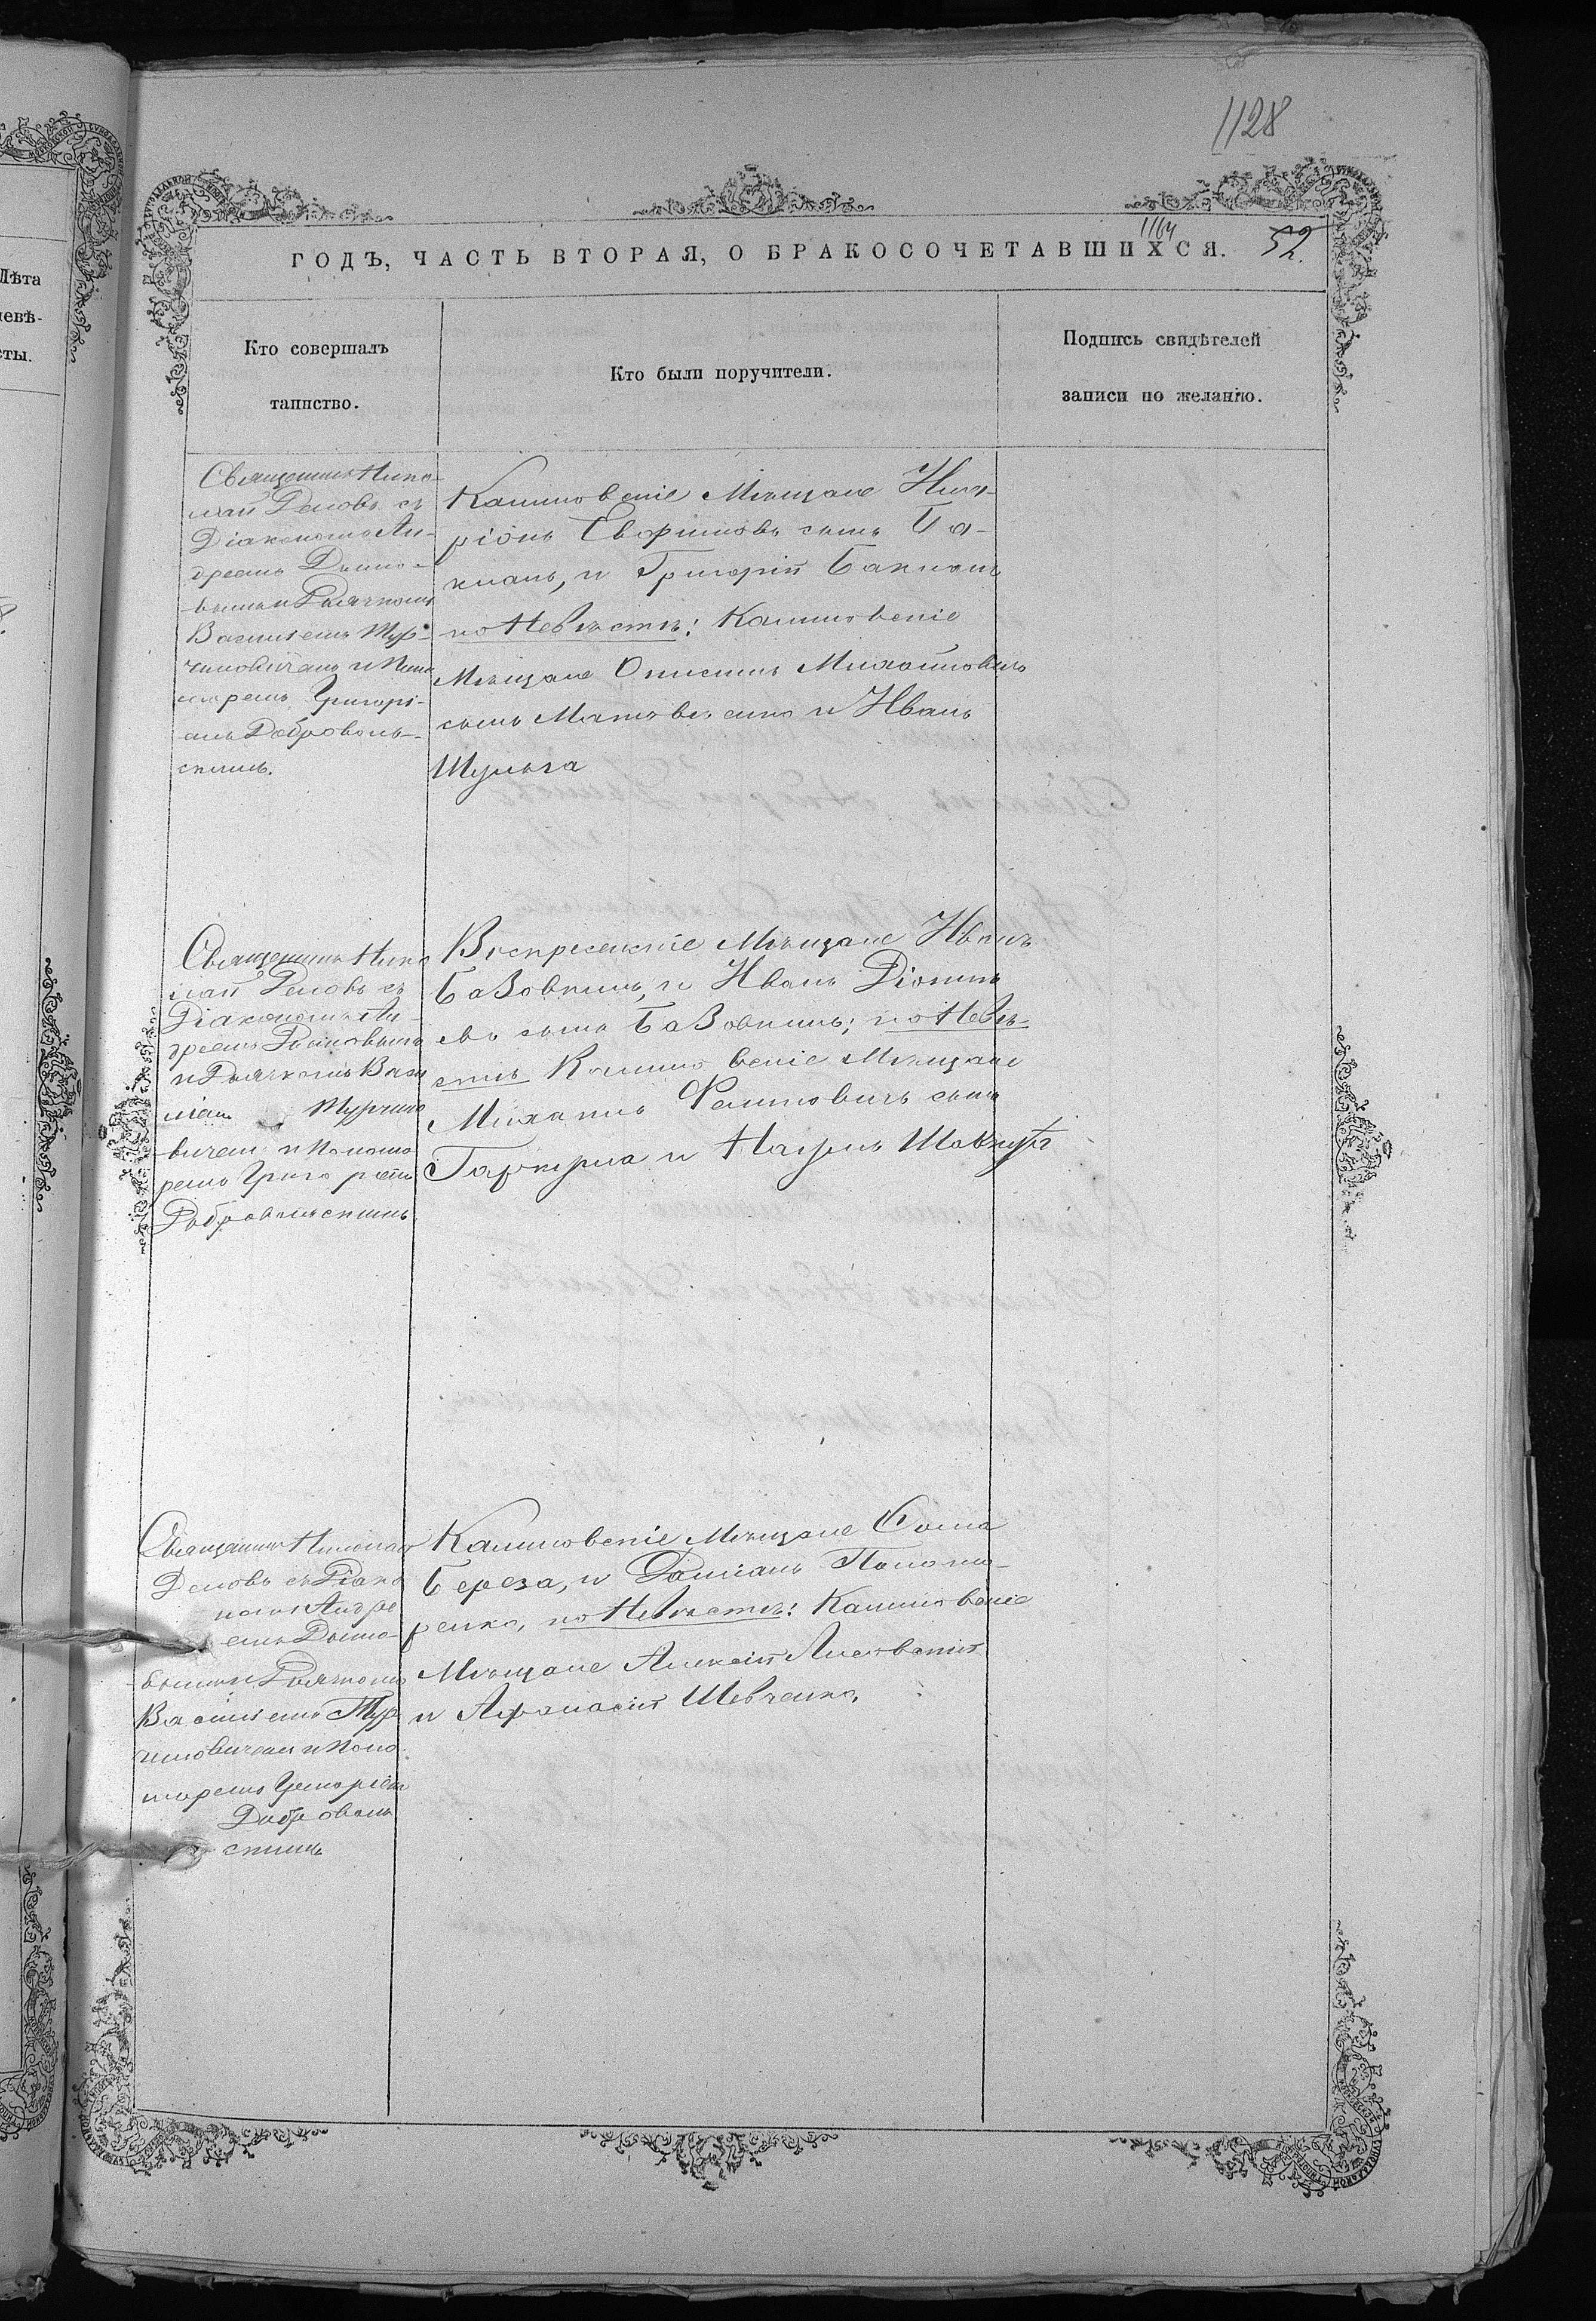 1128
1164
ГОДЪ, ЧАСТЬ ВТОРАЯ, О БРАКОСОЧЕТАВШИХСЯ. 52.
Лѣта
невѣ-
сты.
Кто совершалъ
таинство.
Кто были поручители.
Подпись свидѣтелей
записи по желанію.
Священникъ Нико-
лай съ
Діакономъ Ан-
дреемъ Дымо-
вымъ и Дьячкомъ
Василіемъ Тур-
чиновичемъ и Поно
маремъ Григорі-
емъ Доброволь-
скимъ.
Мѣщане Ила-
ріонъ Евфимовъ сынъ Ба-
кланъ, и Григорій Бакланъ
по Невѣстѣ:
Мѣщане Онисимъ Михайловъ
сынъ Матвѣенко и Иванъ
Шульга
Священникъ Нико
лай съ
Діакономъ Ан-
дреемъ Дымовымъ
и Дьячкомъ Васи
ліемъ Турчино
вичемъ и Понома
ремъ Григоріемъ
Добровольскимъ
Воскресенскіе Мѣщане Иванъ
БаЗовкинъ, и Иванъ Діонис
евъ сынъ БаЗовкинъ; по Невѣ-
стѣ Мѣщане
Михаилъ сынъ
Гаркуша и Наумъ
Священникъ Николай
съ Діако
номъ Андре
емъ Дымо-
вымъ и Дьячкомъ
Василіемъ Тур
чиновичемъ и Поно
маремъ Григоріемъ
Доброволь
скимъ
Мѣщане Фома
Береза, и Даміанъ Панома-
ренко, по Невѣстѣ:
Мѣщане Алексѣй
и Афанасій Шевченко,